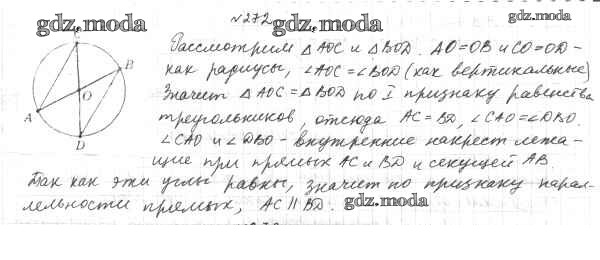 №272
gdz.moda gdz.moda gdz.moda
C
B
O
A
D
Рассмотрим △ AOC и △ BOD. AO=OB и CO=OD-
как радиусы, ∠AOC=∠BOD (как вертикальные)
Значит △ AOC = △ BOD по I признаку равенства
треугольников, отсюда AC=BD, ∠CAO=∠DBO.
∠CAO и ∠DBO - внутренние накрест лежа-
щие при прямых AC и BD и секущей AB.
Так как эти углы равны, значит по признаку парал-
лельности прямых, AC || BD.
gdz.moda